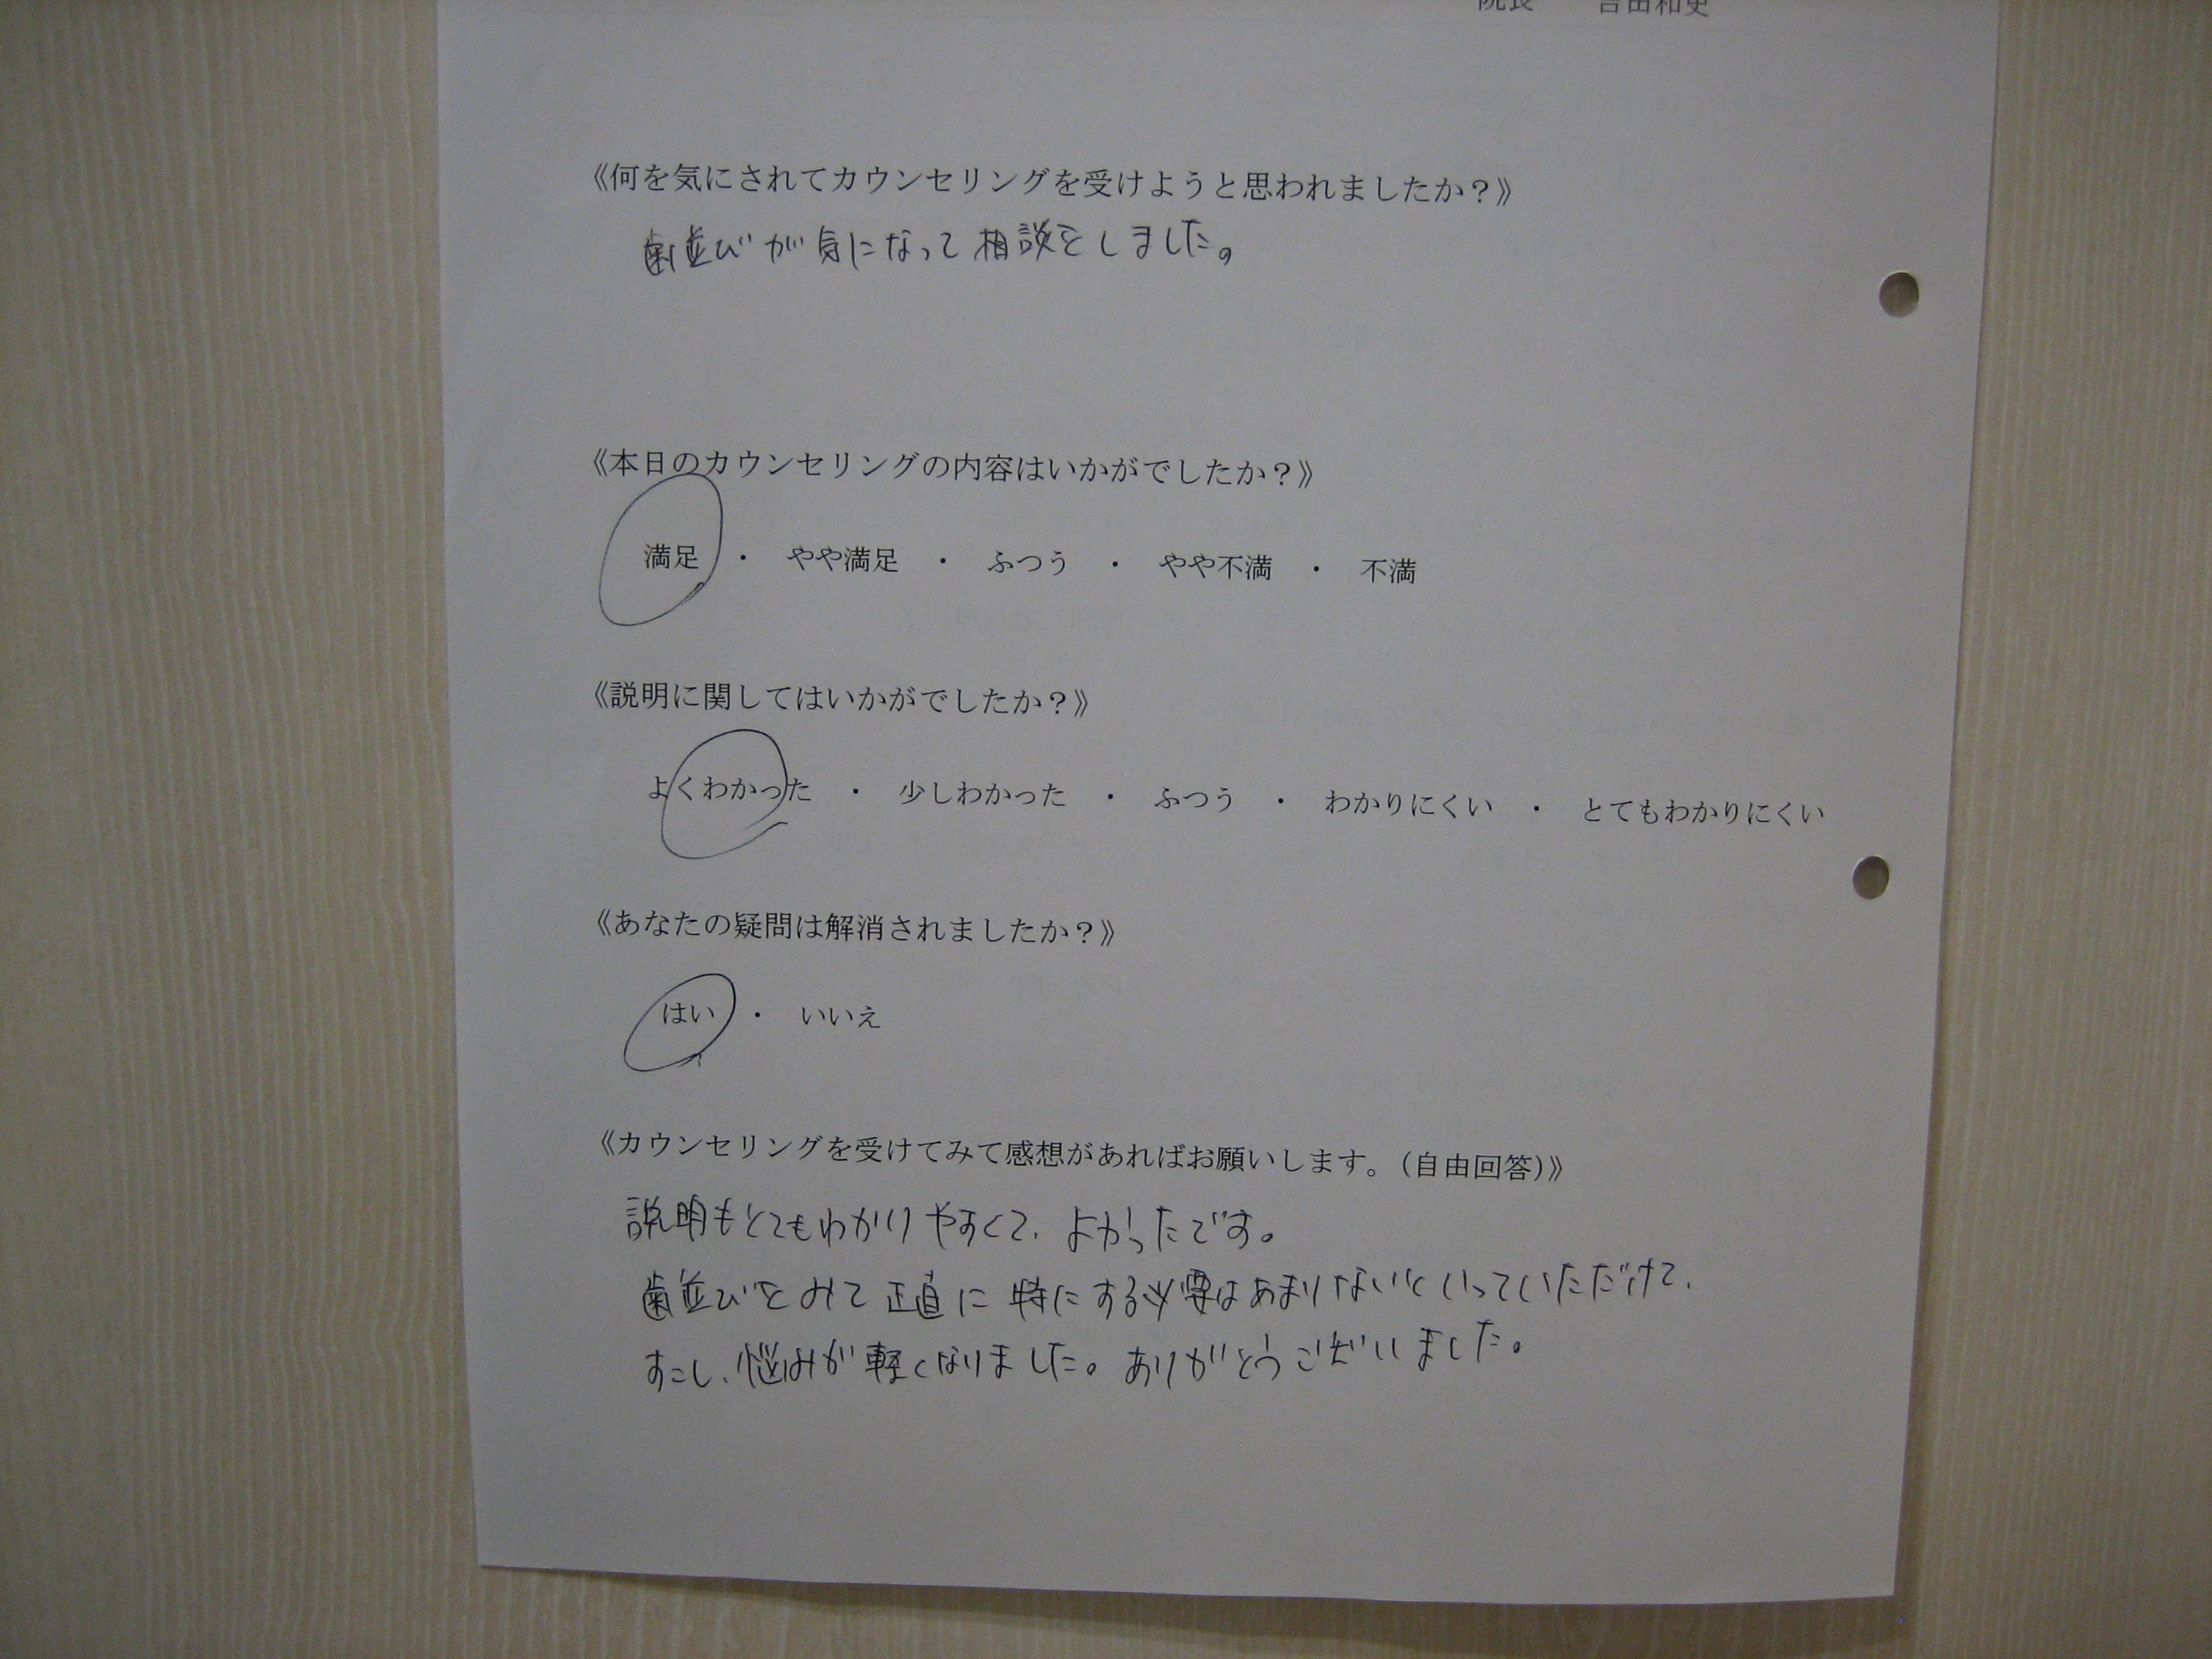 院長 吉田和史
《何を気にされてカウンセリングを受けようと思われましたか？》
歯並びが気になって相談をしました。
《本日のカウンセリングの内容はいかがでしたか？》
満足 ・ やや満足 ・ ふつう ・ やや不満 ・ 不満
《説明に関してはいかがでしたか？》
よくわかった ・ 少しわかった ・ ふつう ・ わかりにくい ・ とてもわかりにくい
《あなたの疑問は解消されましたか？》
はい ・ いいえ
《カウンセリングを受けてみて感想があればお願いします。（自由回答）》
説明もとてもわかりやすくて、よかったです。
歯並びをみて正直に特にする必要はあまりないといっていただけて、
すこし、悩みが軽くなりました。ありがとうございました。